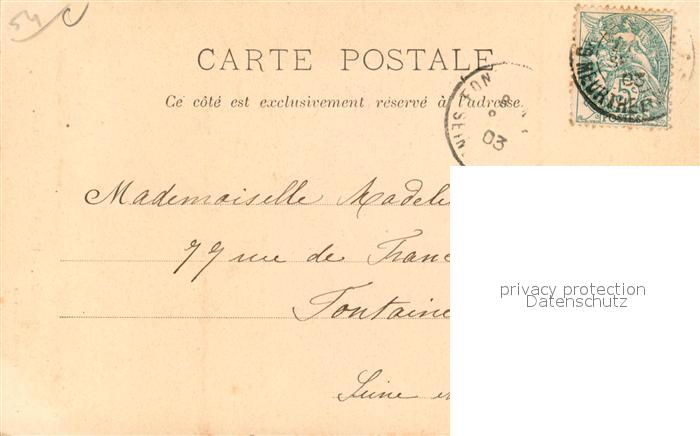 54
CARTE POSTALE
Ce côté est exclusivement réservé à l'adresse.
FON
SEINE
03
MEURTHE
03
5c
POSTES
Mademoiselle Madel
77 rue de Franc
Fontaine
Seine e
privacy protection
Datenschutz